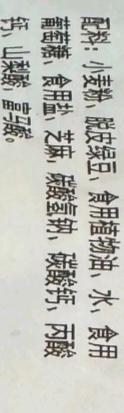 配料：小麦粉、脱皮绿豆、食用植物油、水、食用
葡萄糖、食用盐、芝麻、碳酸氢钠、碳酸钙、丙酸
钙、山梨酸、富马酸。